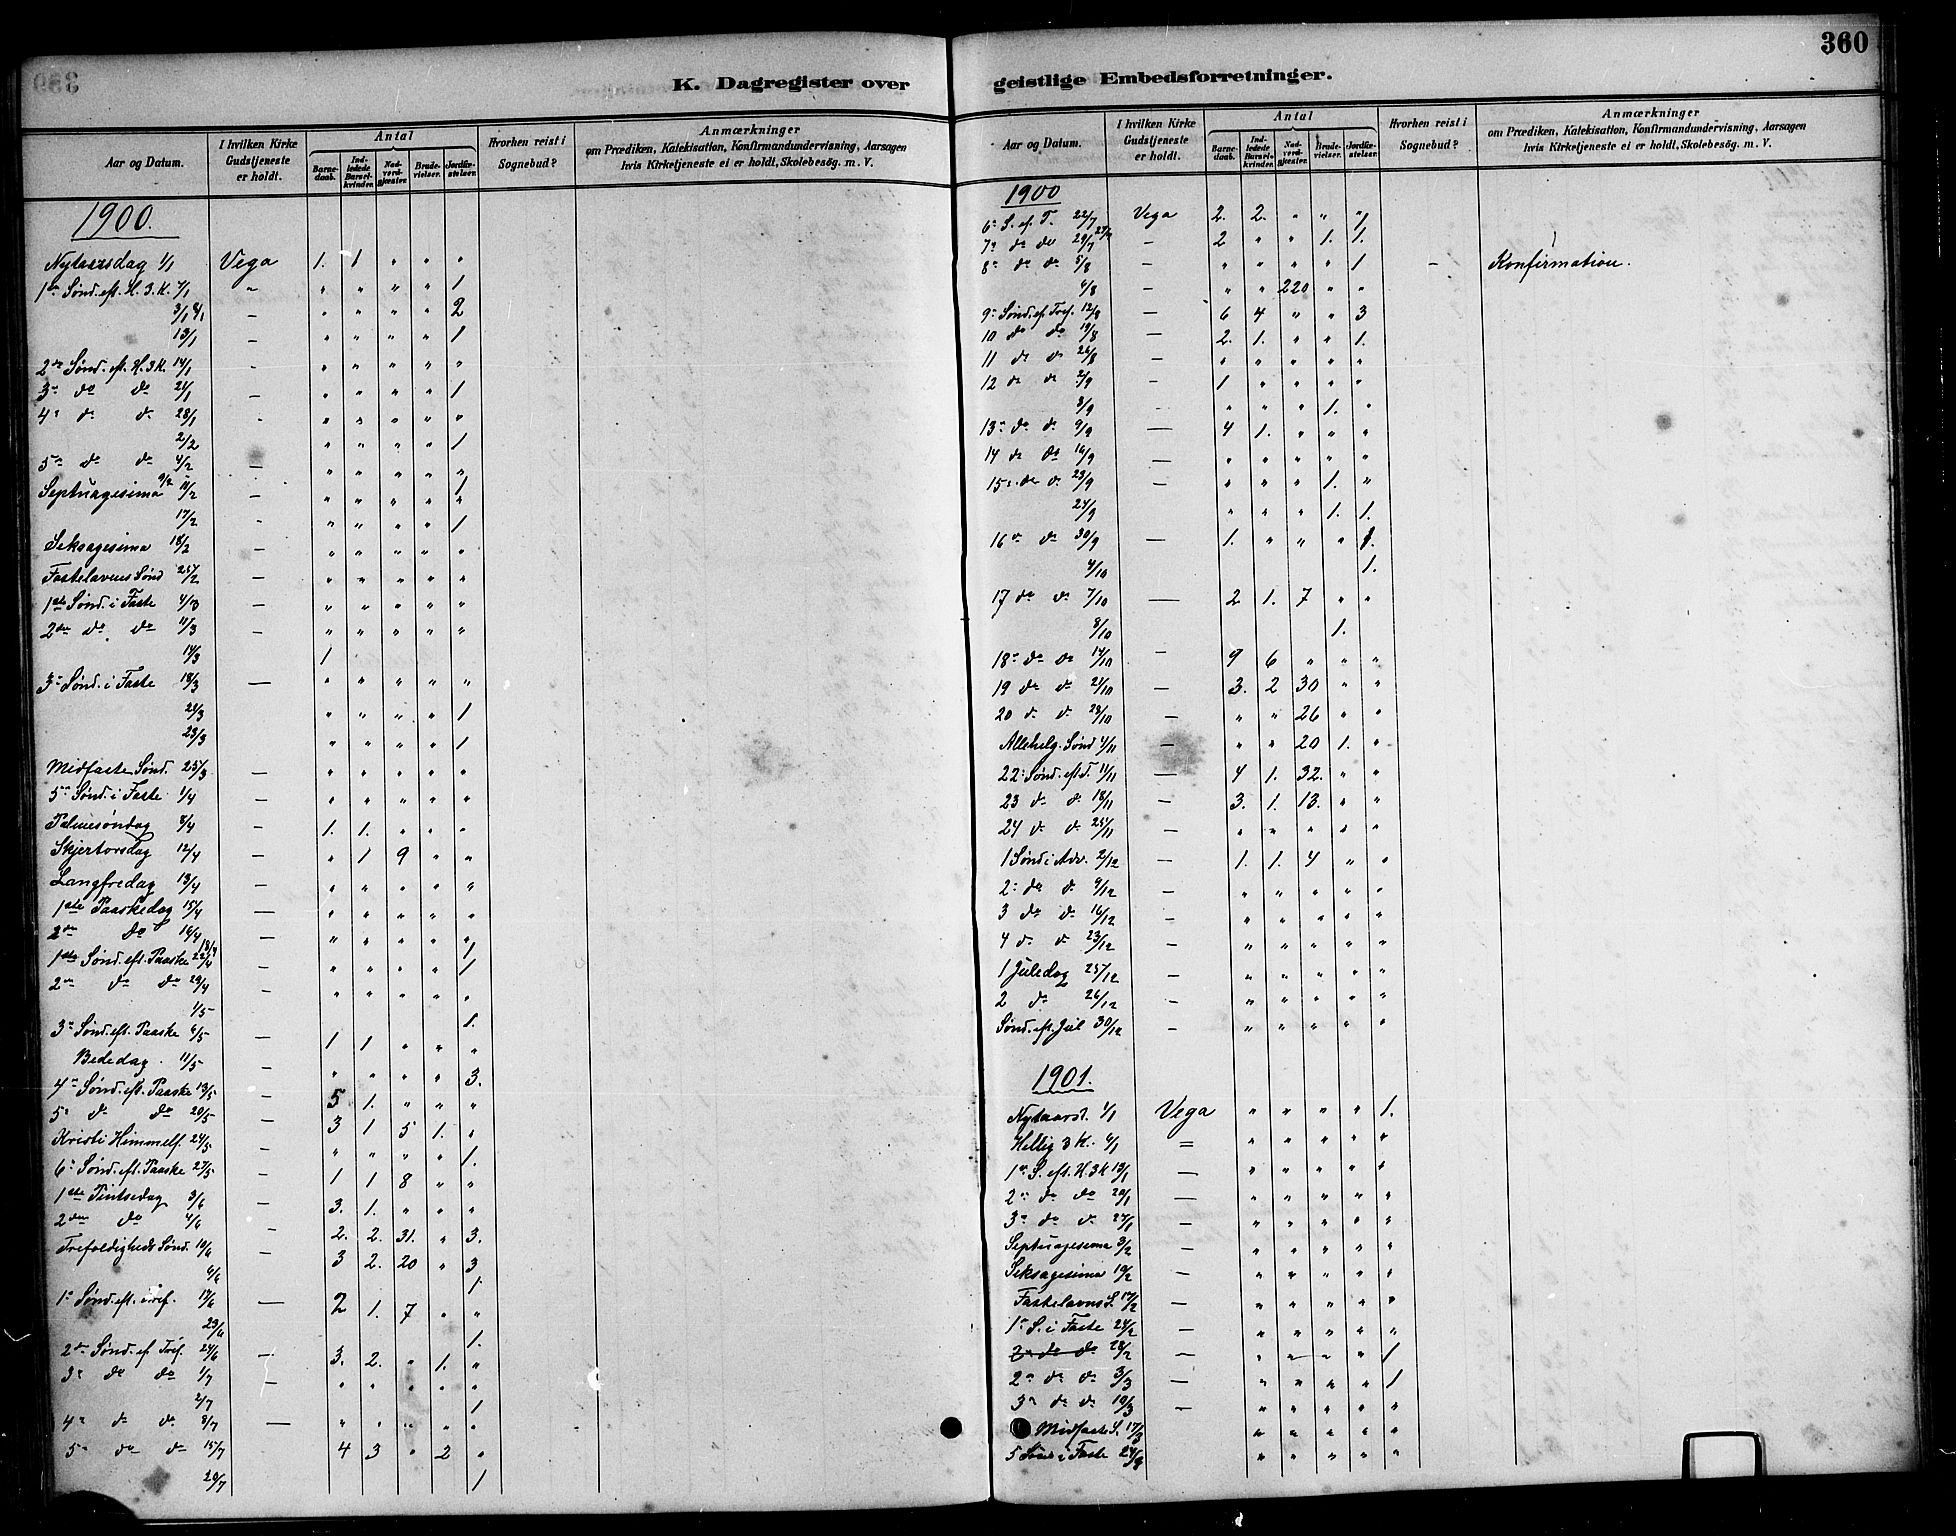 K. Dagregister over
Aar og Datum. | I hvilken Kirke Gudstjeneste er holdt. | Antal | Barne-daab. | Ind-ledede Barsel-kvinder. | Nad-verd-gjester. | Brude-vielser. | Jordfæ-stelser. | Hvorhen reist i Sognebud? | Anmærkninger om Prædiken, Katekisation, Konfirmandundervisning, Aarsagen hvis Kirketjeneste ei er holdt, Skolebesøg. m. V.
1900.
Nytaarsdag 1/1 Vega 1. 1 " " "
1ste Sønd. eft. H. 3. K. 7/1 " " " " " 1
3/1 8/1 — " " " " 2
13/1 — " " " " 1
2den Sønd. eft. H. 3 K. 14/1 - " " " " "
3die do do 21/1 — " " " " 1
4de do do 28/1 - " " " " "
2/2 " " " " 1
5te do do 4/2 — " " " " "
Septuagesima 9/2 11/2 — " " " " 1 "
17/2 - " " " " 1
Seksagesima 18/2 — " " " " "
Fastelavens Sønd 25/2 — " " " " "
1ste Sønd. i Faste 4/3 — " " " " "
2den do do 11/3 — " " " " "
14/3 1
3die Sønd. i Faste 18/3 — " " " " "
21/3 " " " " 1
23/3 " " " " 1
Midfaste Sønd. 25/3 — " " " " "
5te Sønd. i Faste 1/4 — " " " " "
Palmesøndag 8/4 — 1. 1. " " "
Skjertorsdag 12/4 — " 1 9 " "
Langfredag 13/4 — " " " " "
1ste Paaskedag 15/4 — " " " " "
2den do 16/4 — " " " " "
18/4 1
1ste Sønd. eft. Paaske 22/4 — " " " " 1
2den do do 29/4 — " " " " "
1/5 1.
3die Sønd. eft. Paaske 6/5 — 1 1 " " "
Bededag. 11/5 — " " " " 3.
4de Sønd. eft. Paaske 13/5 — 5 1. " " "
5te do do 20/5 — 3 1 5 1. "
Kristi Himmelf. 24/5 — " " " " 1.
6te Sønd. eft. Paaske 27/5 — 1 1 8 " "
1ste Pintsedag 3/6 — 3. 1. " " "
2den do 4/6 — 2. 2. 31. " 3.
Trefoldigheds Sønd. 10/6 — 3 2. 20 " 3
6/6 1
1ste Sønd. eft. Tref. 17/6 — 2 1. 7 " "
23/6 1.
2den Sønd. ef. Tref. 24/6 — 3. 2. " 1. "
3die do do 1/7 — " " " " "
2/7 1
4de do do 8/7 — " " " " "
5te do do 15/7 4 3 " 2 "
20/7 1
360
geistlige Embedsforretninger.
Aar og Datum. | I hvilken Kirke Gudstjeneste er holdt. | Antal | Barne-daab. | Ind-ledede Barsel-kvinder. | Nad-verd-gjester. | Brude-vielser. | Jordfæ-stelser. | Hvorhen reist i Sognebud? | Anmærkninger om Prædiken, Katekisation, Konfirmandundervisning, Aarsagen hvis Kirketjeneste ei er holdt, Skolebesøg. m. V.
1900
6te S. ef. T. 22/7 Vega 2. 2. " " "
7de do do 29/7 — 2 " " 1. 1.
8de do do 5/8 — " " " " 1 — Konfirmation.
6/8 — " " 220 " "
9de Sønd. ef. Tref. 12/8 — 6 4 " " 3
10 do do 19/8 — 2. 1. " " 1.
11 do do 26/8 — " " " " "
12 do do 2/9 — 1 " " " "
8/9 - " " " 1. "
13de do do 9/9 — 4 1. " " "
14 do do 16/9 — " " " " "
15de do do 23/9 — " " " 1. "
24/9 " " " 1. 1.
16de do 30/9 — 1. " " " 1.
4/10 1.
17 do do 7/10 — 2 1. 7 " "
8/10 1.
18de do do 14/10 — 9 6 " " "
19 do do 21/10 — 3. 2 30 " "
20 do do 28/10 — " " 26 " "
Allehelg. Sønd 4/11 — " " 20 1. "
22de Sønd. eft. T. 11/11 — 4 1. 32. " "
23 do do 18/11 — 3. 1. 13. " "
24 do do 25/11 — " " " " "
1 Sønd i Adv. 2/12 — 1. 1. 4 " "
2den do do 9/12 — " " " " "
3 do do 16/12 — " " " " "
4 do do 23/12 — " " " " "
1 Juledag 25/12 — " " " " "
2 do 26/12 — " " " " "
Sønd. eft. Jul 30/12 — " " " " "
1901.
Nytaarsd. 1/1 Vega " " " " 1.
Hellig 3 K. 6/1 = " " " " "
1ste S. eft. H. 3 K 13/1 — " " " " "
2den do do 20/1 — " " " " "
3die do do 27/1 — " " " " "
Septuagesima 3/2 — " " " " "
Seksagesima 10/2 — " " " " "
Fastelavns S. 17/2 — " " " " "
1ste S. i Faste 24/2 — " " " " "
2den do do 28/2 — " " " " 1
2den do do 3/3 — " " " " 1
3die do do 10/3 — " " " " "
Midfaste S. 17/3 " " " " "
5 Sønd i Faste 24/3 " " " " "